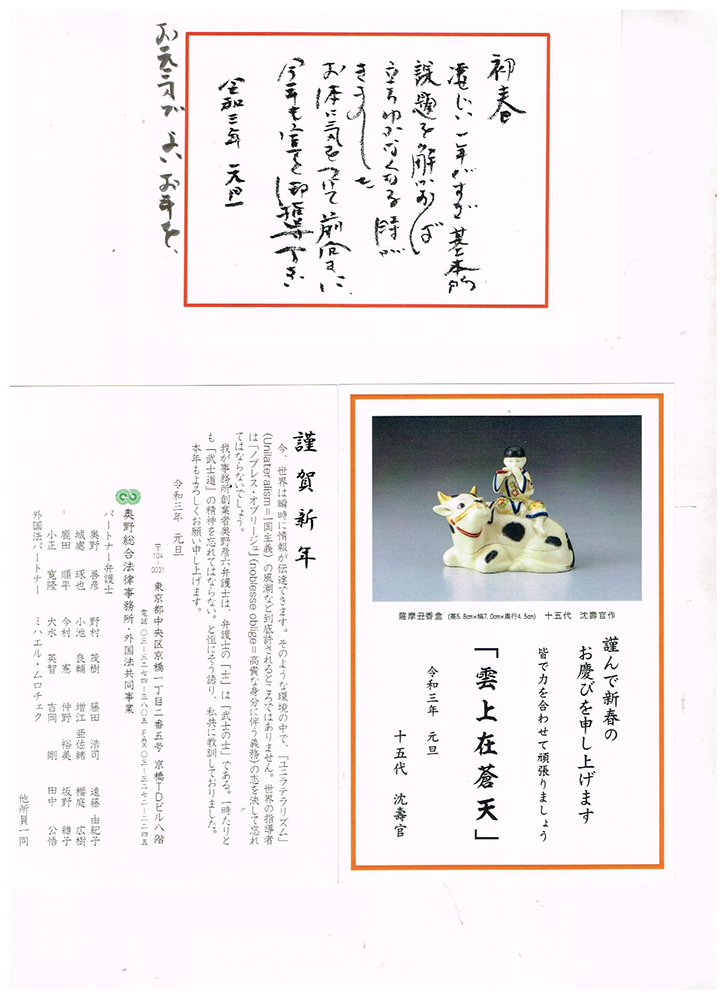 初春
凄じい一年ですが基本的
課題を解かおば
立ちゆかなくなる時が
きました
お体に気をつけて前向きに
今年も宜しく御指導下さい
令和三年 元旦
お元気でよいお年を、
薩摩丑香盒 (高5.8cm×幅7.0cm×奥行4.5cm) 十五代 沈壽官作
謹んで新春の
お慶びを申し上げます
皆で力を合わせて頑張りましょう
「雲上在蒼天」
令和三年 元旦
十五代 沈壽官
謹賀新年
今、世界は瞬時に情報が伝達できます。そのような環境の中で、「ユニラテラリズム」
(Unilateralism＝一国主義)の風潮など到底許されるところではありません。世界の指導者
は「ノブレス・オブリージュ」(noblesse oblige＝高貴な身分に伴う義務)の志を決して忘れ
てはならないでしょう。
我が事務所創業者奥野彦六弁護士は、弁護士の「士」は「武士の士」である。一時たりと
も「武士道」の精神を忘れてはならない。と恒にそう語り、私共に教訓しておりました。
本年もよろしくお願い申し上げます。
令和三年 元旦
〒104-0031 東京都中央区京橋一丁目二番五号 京橋TDビル八階
電話〇三-三二七四-三八〇五 FAX〇三-三二七二-二二四五
奥野総合法律事務所・外国法共同事業
パートナー弁護士
奥野 善彦 野村 茂樹 藤田 浩司 遠藤 由紀子
城處 琢也 小池 良輔 増江 亜佐緒 櫻庭 広樹
鹿田 順平 今村 憲 仲野 裕美 坂野 維子
小正 寛隆 大水 英智 吉岡 剛 田中 公悟
外国法パートナー ミハエル・ムロチェク
他所員一同